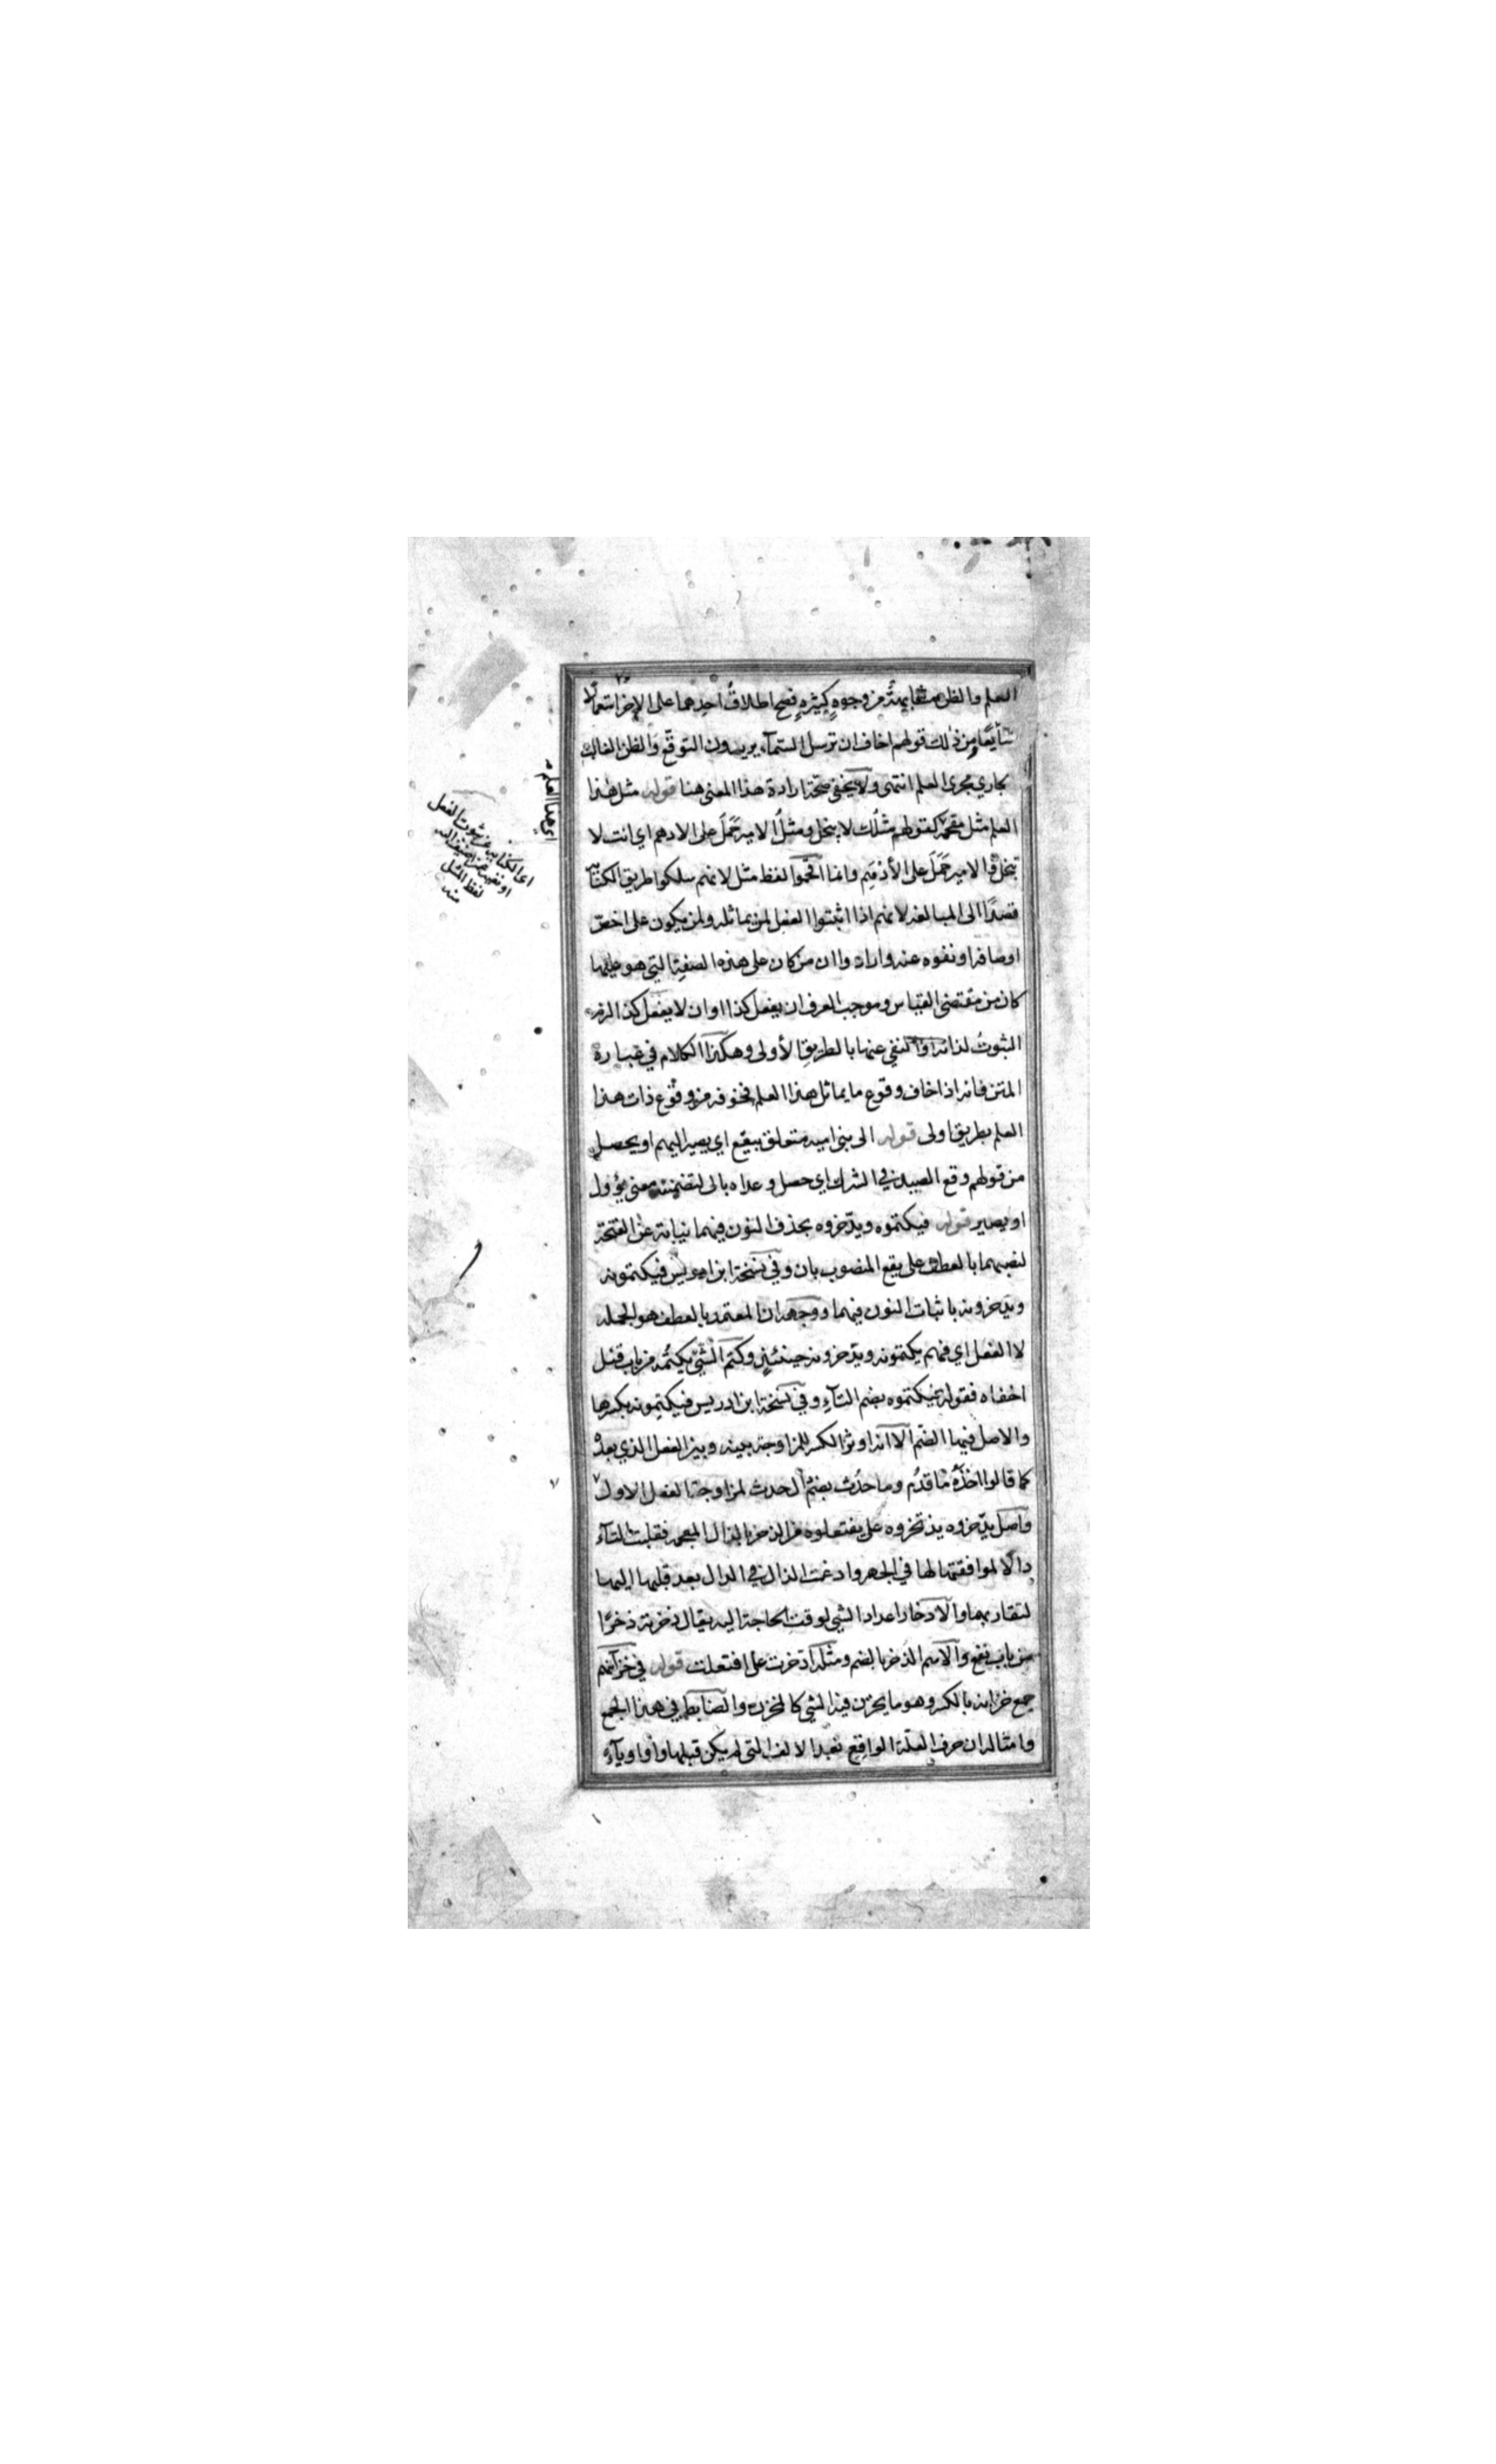 العلم والظن مشابهة من وجوه كثيرة فصح اطلاق احدهما على الاخر استعمالا
شايعا من ذلك قولهم اخاف ان ترسل السماء يريدون التوقع والظن الغالب
جاري مجرى العلم انتهى ولا يخفى صحة ارادة هذا المعنى هنا قوله مثل هذا
العلم مثل مقحمة كقولهم مثلُك لا يبخل ومثلُ الامير حَمَلَ على الادهم اي انت لا
تبخل والامير حَمَلَ على الأدهم وانما اقحموا لفظ مثل لانهم سلكوا طريق الكناية
قصدًا الى المبالغة لانهم اذا اثبتوا الفعل لمن يماثله ولمن يكون على اخص
اوصافه او نفوه عنه وارادوا ان من كان على هذه الصفة التي هو عليها
كان من مقتضى القياس وموجب العرف ان يفعل كذا او ان لا يفعل كذا لزم
الثبوتُ لذاته او النفي عنها بالطريق الأولى وهكذا الكلام في عبارة
المتن فانه اذا خاف وقوع ما يماثل هذا العلم فخوفه من وقوع ذات هذا
العلم بطريق اولى قوله الى بني اميه متعلق بيقع اي يصير اليهم او يحصل
من قولهم وقع الصيد في الشرك اي حصل وعداه بالى لتضمنه معنى يؤول
او يصير قوله فيكتموه ويدّخروه بحذف النون فيهما نيابة عن الفتحة
لنصبهما بالعطف على يقع المنصوب بان وفي نسخة ابن ادريس فيكتمونه
ويدخرونه باثبات النون فيهما ووجهه ان المعتمد بالعطف هو الجمله
لا الفعل اي فهم يكتمونه ويدّخرونه حينئذٍ وكتم الشيَ يكتُمه من باب قتل
اخفاه فقوله فيكتموه بضم التاء وفي نسخة ابن ادريس فيكتِمونه بكسرها
والاصل فيها الضم الا انه اوثر الكسر للمزاوجة بينه وبين الفعل الذي بعده
كما قالوا اخذه ما قدُم وما حدُث بضم الحدث لمزاوجة الفعل الاول
واصل يدّخروه يذتخروه على يفتعلوه من الذخر بالذال المعجمه فقلبت التاء
دالا لموافقتها لها في الجهر وادغمت الذال في الدال بعد قلبها اليها
لتقاربهما والادخار اعداد الشي لوقت الحاجة اليه يقال ذخرته ذخرًا
من باب نفع والاسم الذخر بالضم ومثله ادّخرت على افتعلت قوله في خزائنهم
جمع خزانه بالكسر وهو ما يخزن فيه الشي كالمخزن والضابط في هذا الجمع
وامثاله ان حرف العلة الواقع بعد الالف التي لم يكن قبلها واوا وياء
اي هذا العلم
اي الكناية عن ثبوت الفعل
لفظ المثل
منه